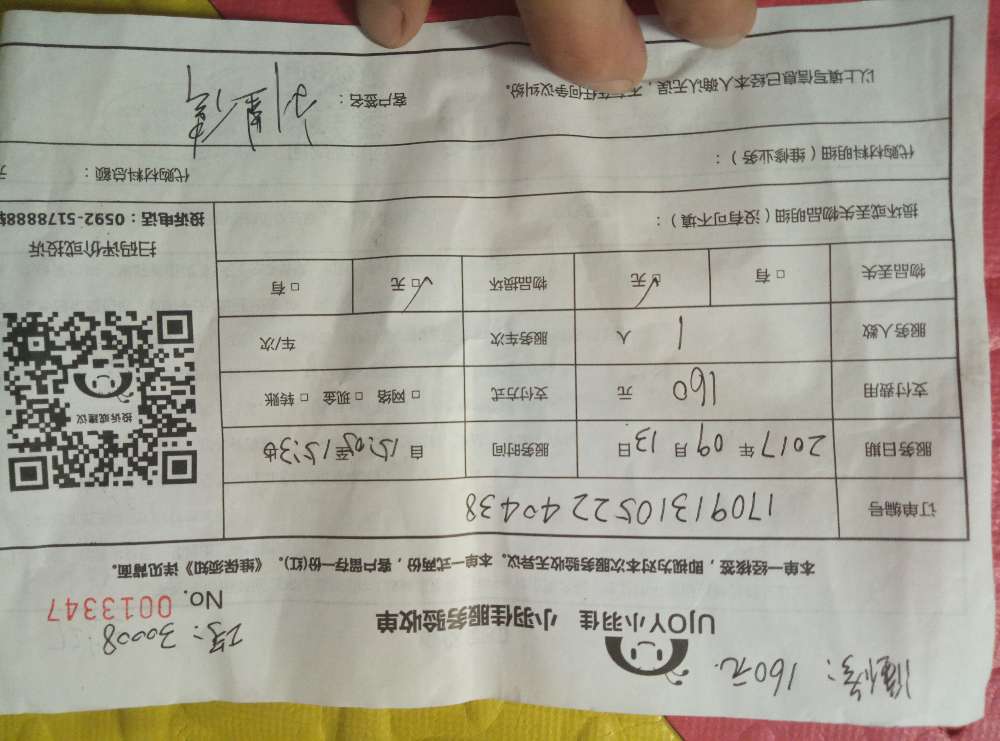 160元
工号：30008
UJOY小羽佳 小羽佳服务验收单
No. 0013347
本单一经核签，即视为对本次服务验收无异议。本单一式两份，客户留存一份(红)。《维保须知》详见背面。
订单编号 17091310522440438
服务日期 2017 年 09 月 13 日 服务时间 自 15:05 至 15:30
支付费用 160 元 支付方式 □ 网络 □ 现金 □ 转账
投诉或建议
服务人数 1 人 服务车次 车/次
物品丢失 □ 有 ☑ 无 物品损坏 ☑ 无 □ 有
扫码评价或投诉
损坏或丢失物品明细（没有可不填）：
投诉电话：0592-5178888
代购材料明细（维修业务）：
代购材料总额：
以上填写信息已经本人确认无误，不存在任何争议纠纷。 客户签名：